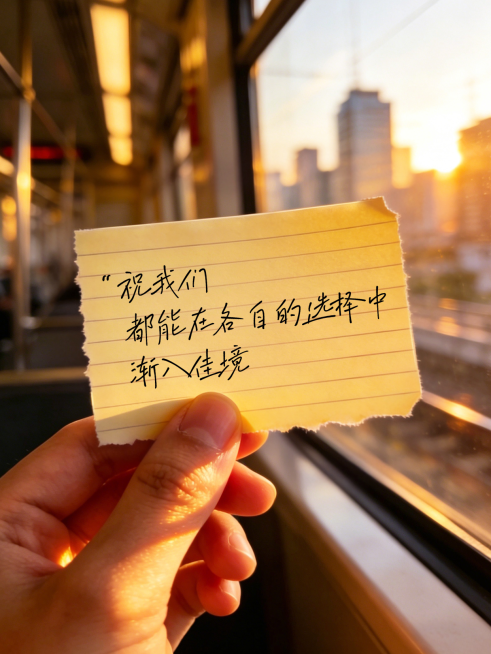 “祝我们
都能在各自的选择中
渐入佳境